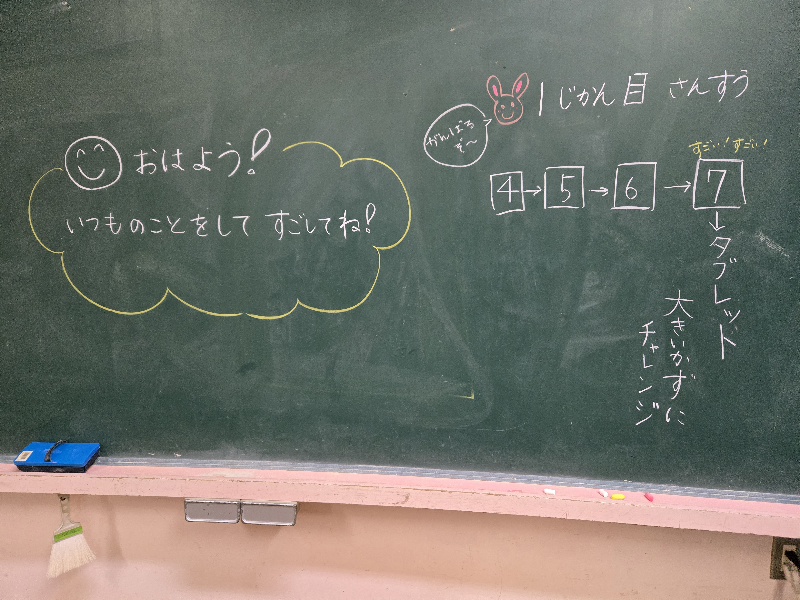 おはよう!
いつものことをして すごしてね!
がんばろ
ぞ〜
1じかん目 さんすう
すごい!すごい!
4→5→6→7
↓タブレッド
大きいかずに
チャレンジ